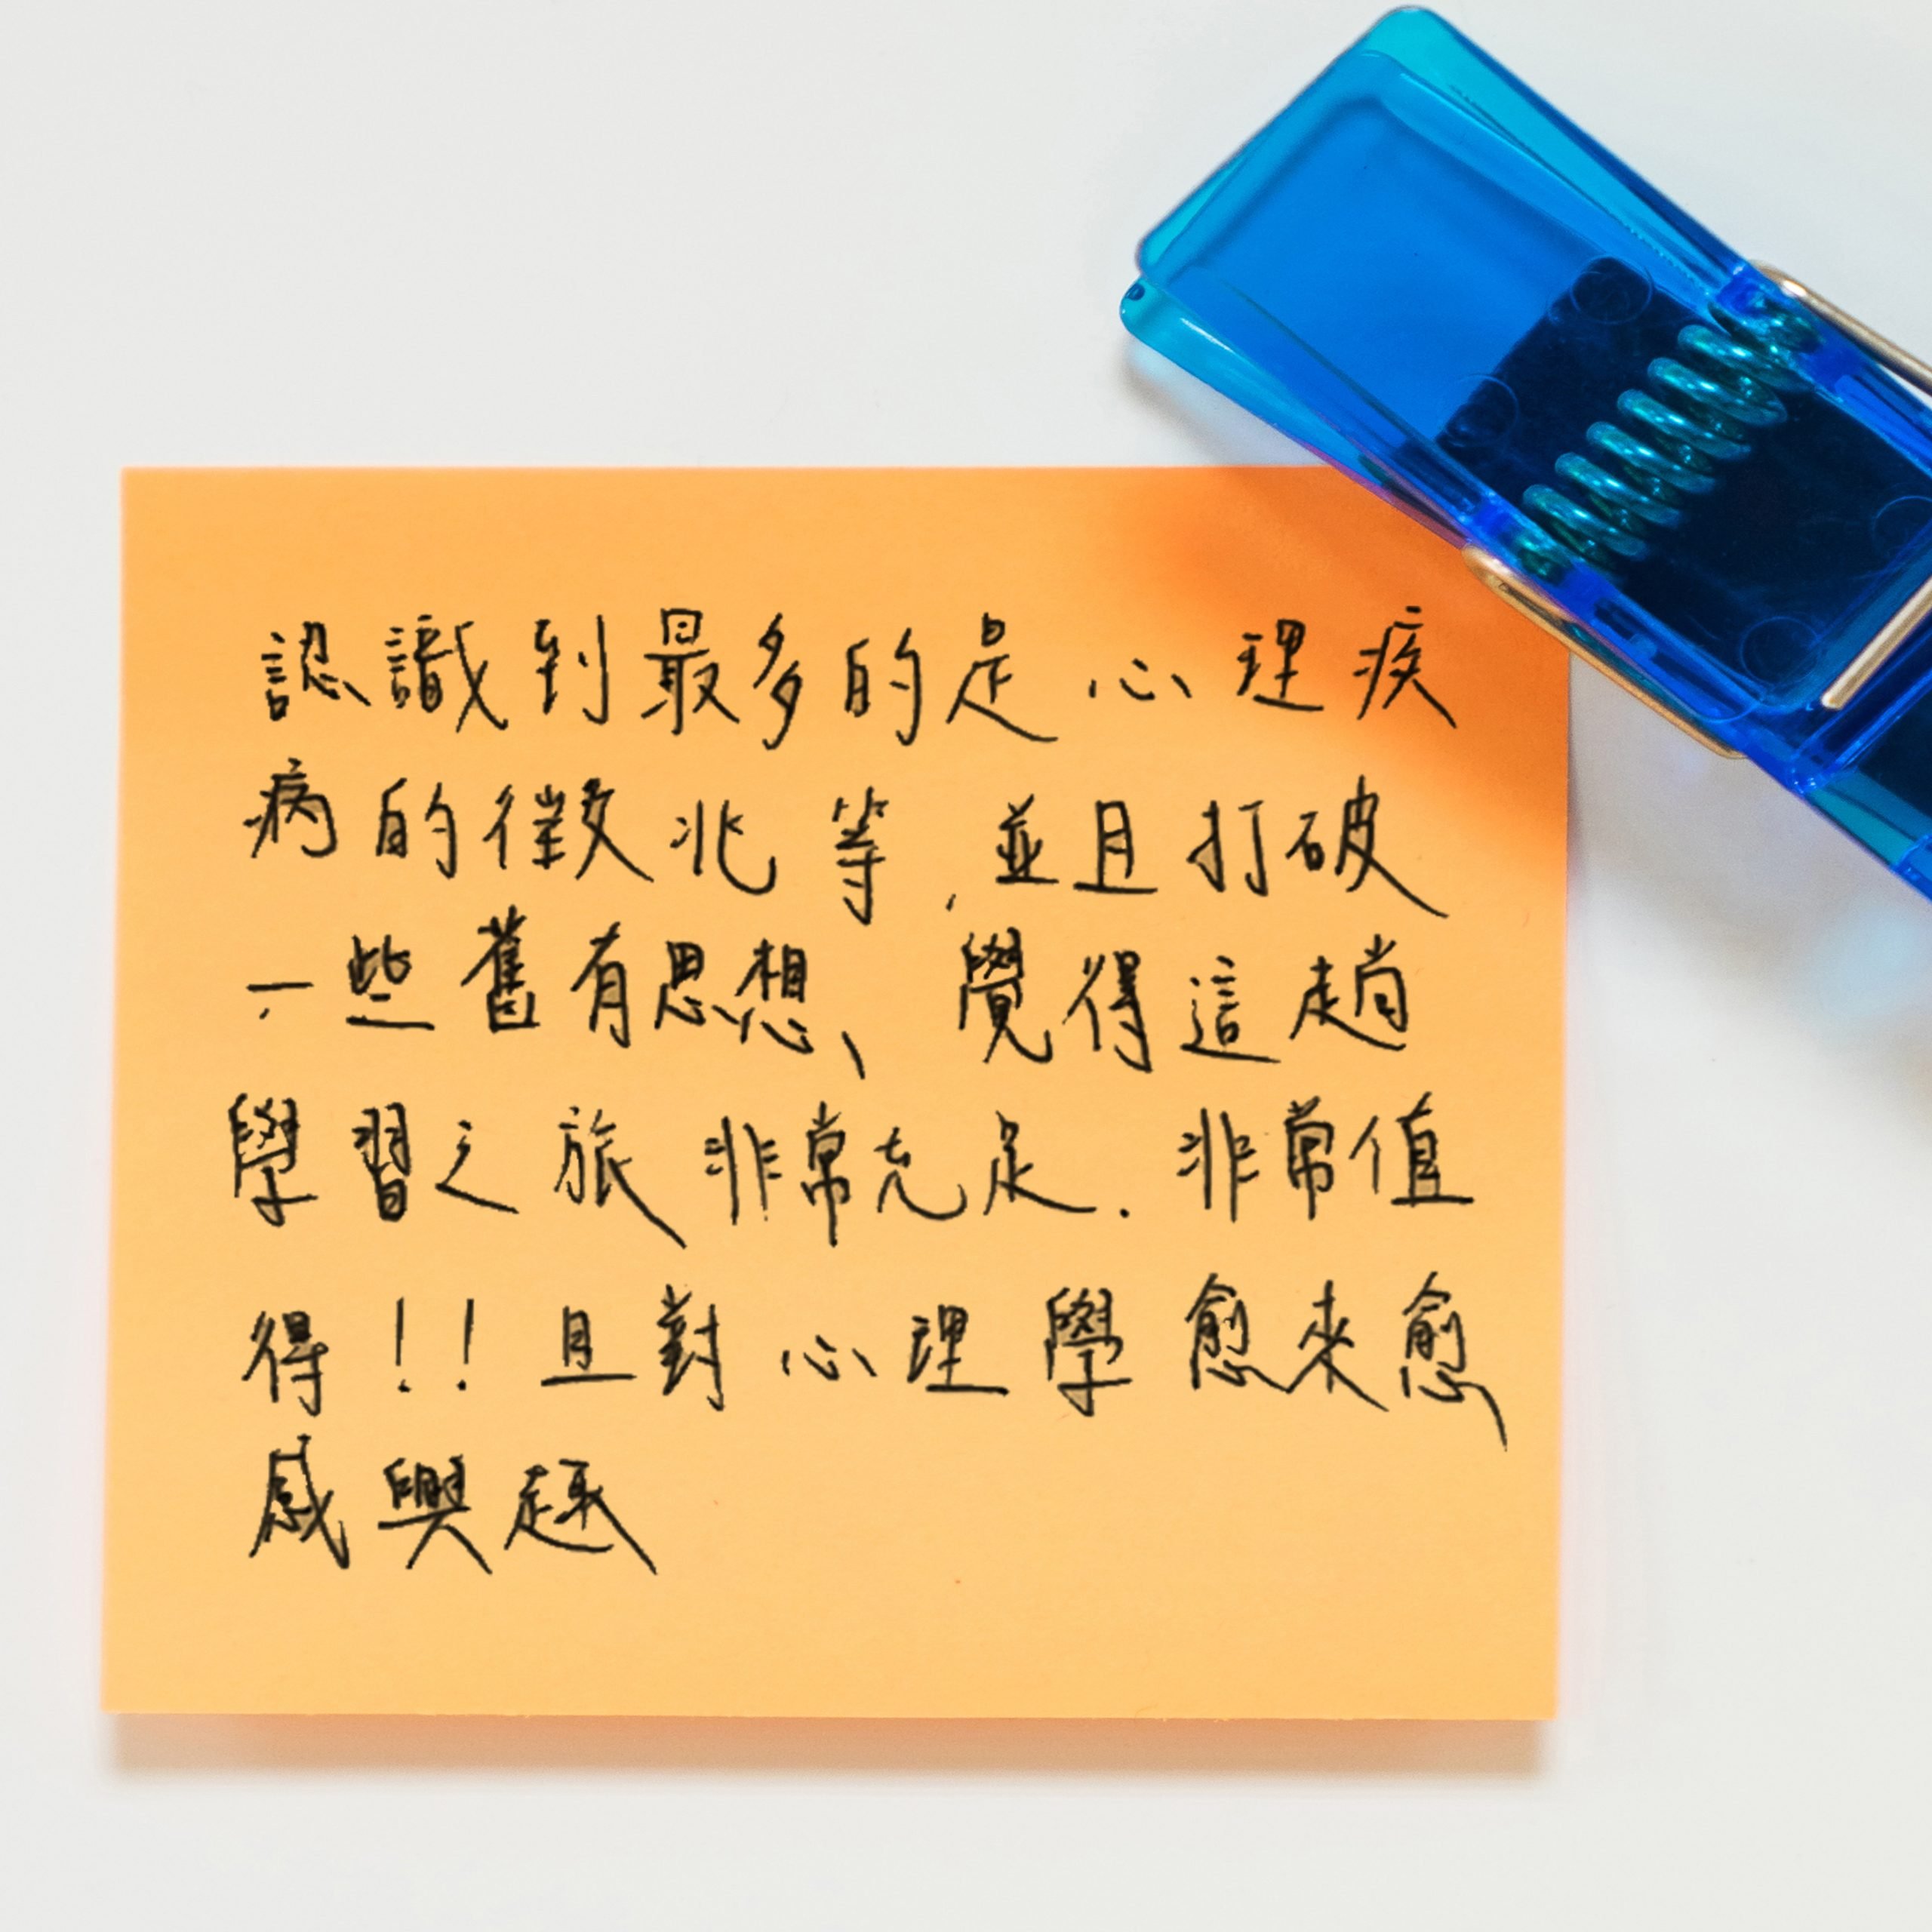 認識到最多的是心理疾
病的徵兆等,並且打破
一些舊有思想、覺得這趟
學習之旅非常充足.非常值
得!!且對心理學愈來愈
感興趣